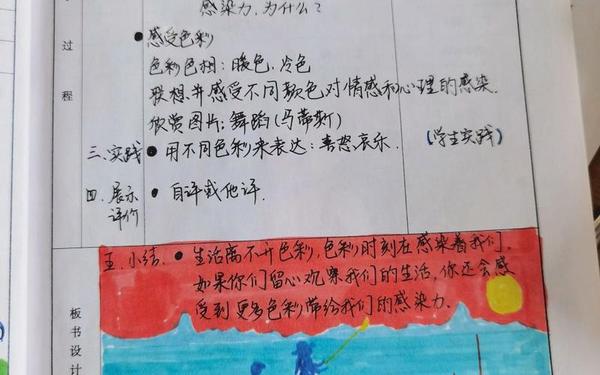 感染力,为什么?
过程
感受色彩
色彩色相:暖色、冷色
联想并感受不同颜色对情感和心理的感染.
欣赏图片:舞蹈(马蒂斯)
三.实践 用不同色彩来表达:喜怒哀乐. (学生实践)
四.展示评价 自评或他评.
五.小结. 生活离不开色彩,色彩时刻在感染着我们.
如果你们留心观察我们的生活,你还会感
受到更多色彩带给我们的感染力.
板书设计